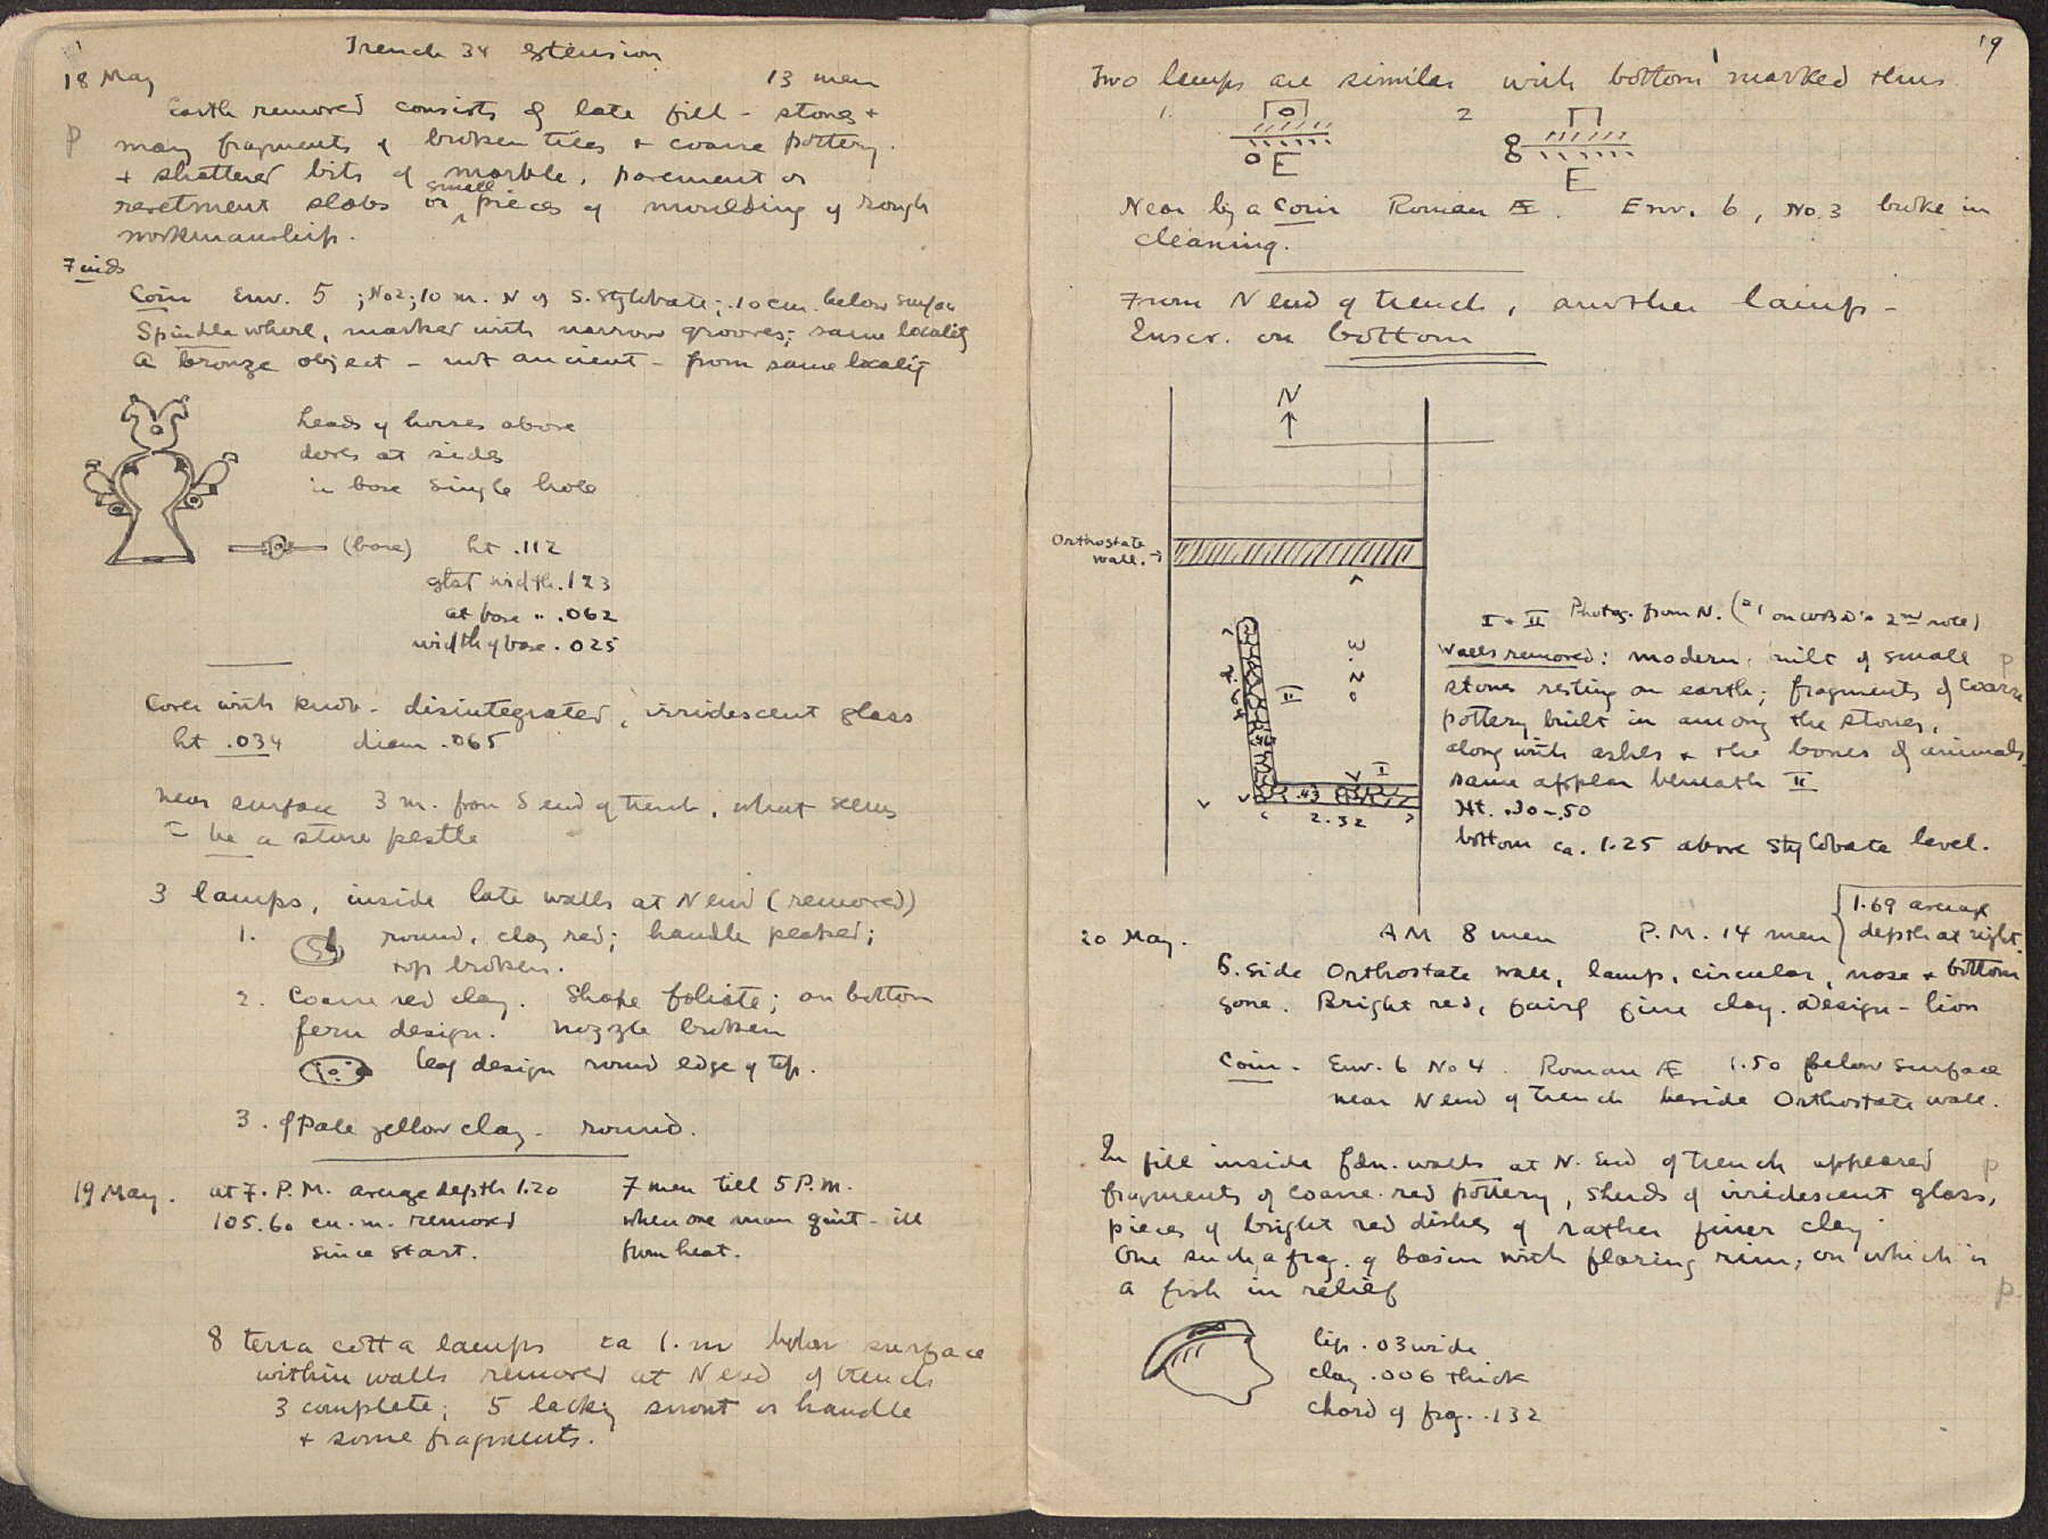 Trench 34 extension
18 May 13 men
Earth removed consists of late fill - stones +
p many fragments of broken tiles + coarse pottery.
+ shattered bits of marble, pavement or
revetment slabs or small pieces of moulding of rough
workmanship.
Finds
Coin Env. 5 ; No 2; 10 m. N of S. Stylobate; .10 cm. below surface
Spindle whorl, marked with narrow grooves; same locality
A bronze object - not ancient - from same locality
heads of horses above
doves at sides
in base single hole
(base) ht .112
gtst width .123
at base " .062
width of base .025
Cover with knob - disintegrated, irridescent glass
ht .034 diam .065
near surface 3 m. from S end of trench, what seems
to be a stone pestle
3 lamps, inside late walls at N end (removed)
1. round, clay red; handle peaked;
top broken.
2. Coarse red clay. Shape foliate; on bottom
fern design. Nozzle broken
leaf design round edge of top.
3. of Pale yellow clay - round.
19 May. at 7. P.M. average depth 1.20 7 men till 5 P.M.
105.60 cu. m. removed when one man quit - ill
since start. from heat.
8 terra cotta lamps ca 1. m below surface
within walls removed at N end of trench
3 complete; 5 lacking snout or handle
+ some fragments.
19
Two lamps are similar with bottom marked thus
1. 2
O E
8
E
Near by a Coin Roman Æ. Env. 6, No. 3 broke in
cleaning.
From N end of trench, another lamp -
Inscr. on bottom
N
Orthostate
wall. →
I + II Photog. from N.
Walls removed: modern, built of small p
stones resting on earth; fragments of coarse
pottery built in among the stones,
along with ashes + the bones of animals
same appear beneath II
Ht. .30-.50
bottom ca. 1.25 above Stylobate level.
3.20
II
I
.43
2.32
1.69 average
depth at right.
20 May. AM 8 men P.M. 14 men
S. side Orthostate wall, lamp, circular, nose + bottom
gone. Bright red, fairly fine clay. Design - lion
Coin - Env. 6 No 4. Roman Æ 1.50 below surface
near N end of trench beside Orthostate wall.
In fill inside fdn. walls at N. End of trench appeared p
fragments of coarse red pottery, sherds of irridescent glass,
pieces of bright red dishes of rather finer clay.
One such, a frag. of basin with flaring rim, on which is
a fish in relief p.
lip .03 wide
clay .006 thick
chord of frag. .132